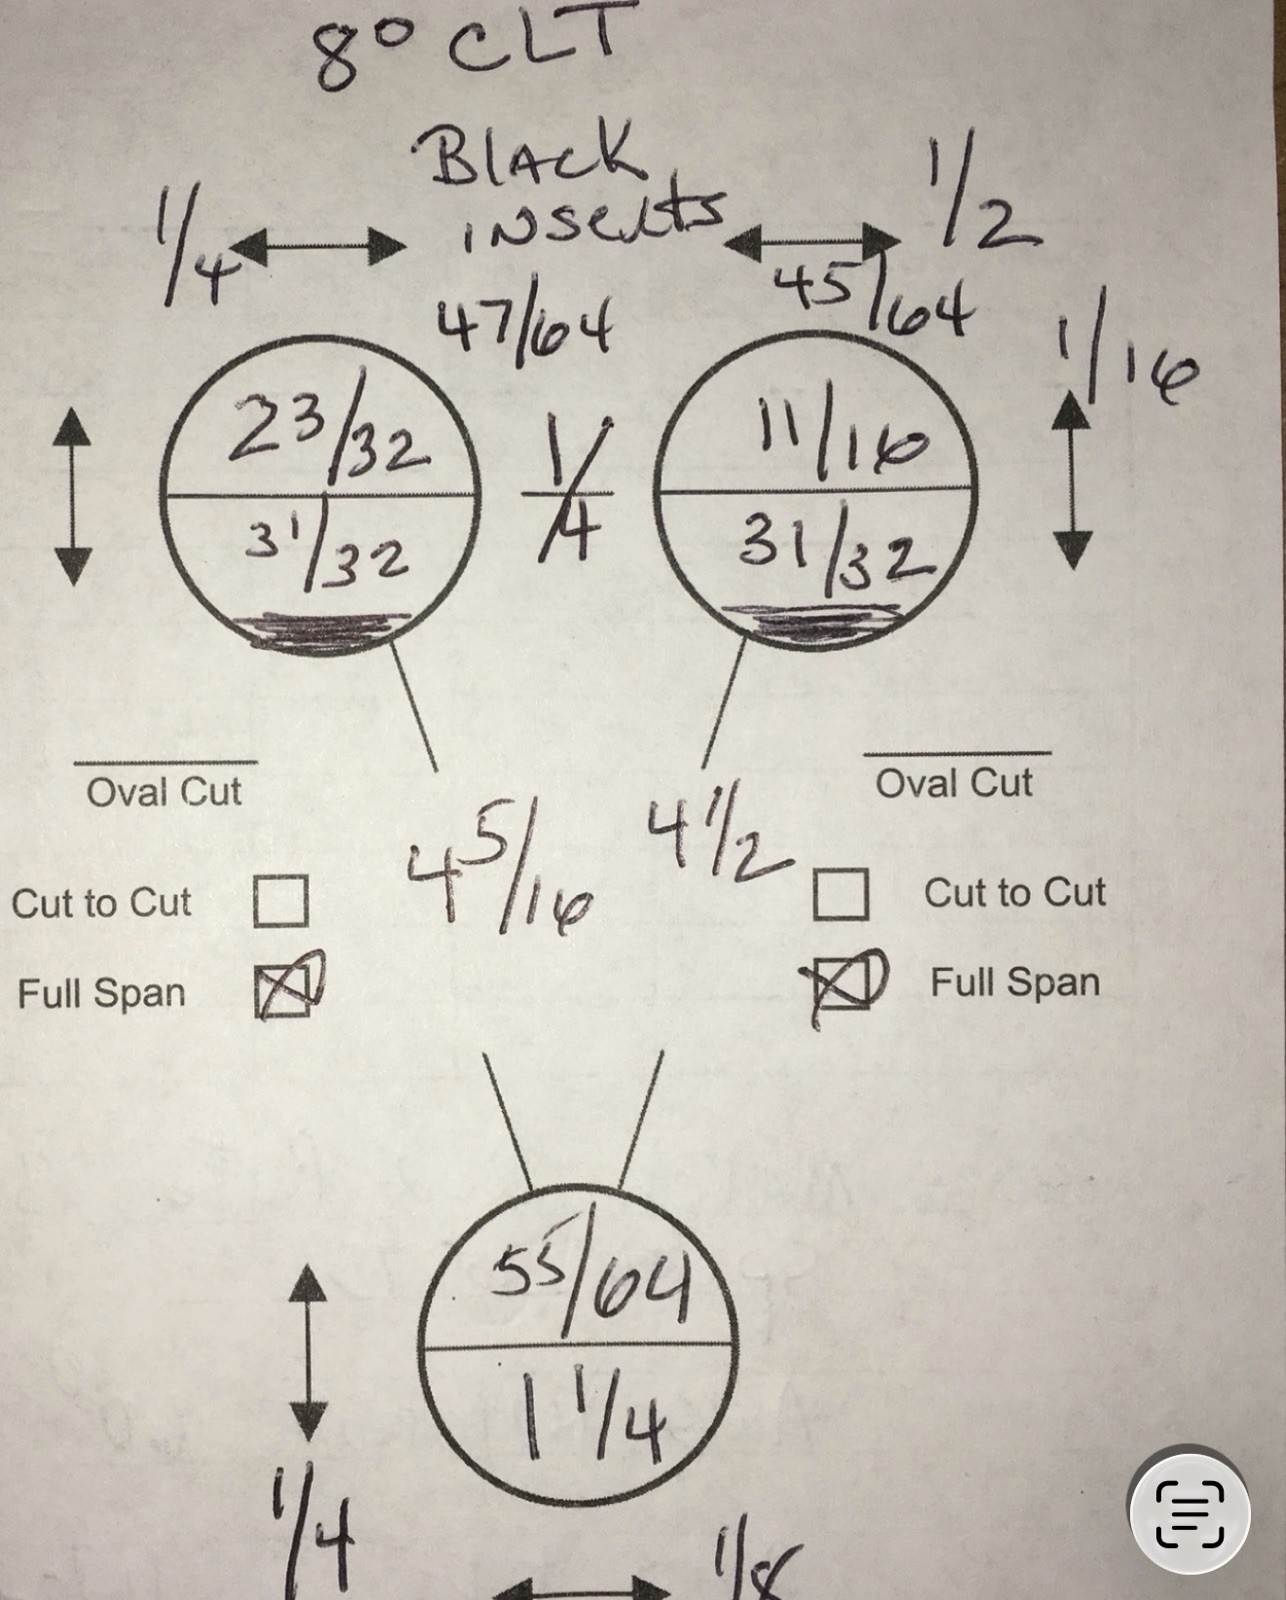 8° CLT
Black
inserts
1/4
1/2
47/64
45/64
1/16
23/32
31/32
1/4
11/16
31/32
Oval Cut
Oval Cut
4 5/16
4 1/2
Cut to Cut
Cut to Cut
Full Span
Full Span
55/64
1 1/4
1/4
1/8